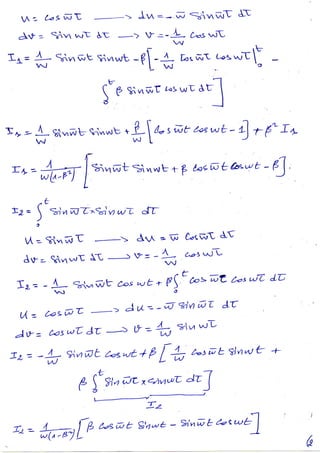 u = cos w̄τ ⟶ du = - w̄ sin w̄τ dτ
dv = sin wτ dτ ⟶ v = - 1/w cos wτ
I₁ = 1/w sin w̄t sin wt - β [ - 1/w cos w̄τ cos wτ |₀ᵗ -
∫₀ᵗ β sin w̄τ cos wτ dτ ]
I₁ = 1/w sin w̄t sin wt + β/w [ cos w̄t cos wt - 1 ] + β² I₁
I₁ = 1/w(1-β²) [ sin w̄t sin wt + β cos w̄t cos wt - β ].
I₂ = ∫₀ᵗ sin w̄τ × sin wτ dτ
u = sin w̄τ ⟶ du = w̄ cos w̄τ dτ
dv = sin wτ dτ ⟶ v = - 1/w cos wτ
I₂ = - 1/w sin w̄t cos wt + β ∫₀ᵗ cos w̄τ cos wτ dτ
u = cos w̄τ ⟶ du = - w̄ sin w̄τ dτ
dv = cos wτ dτ ⟶ v = 1/w sin wτ
I₂ = - 1/w sin w̄t cos wt + β [ 1/w cos w̄t sin wt +
β ∫ sin w̄τ × sin wτ dτ ]
I₂
I₂ = 1/w(1-β²) [ β cos w̄t sin wt - sin w̄t cos wt ]
6